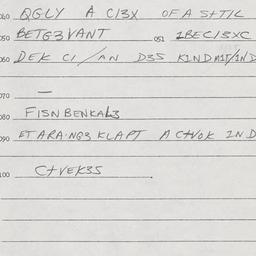 060 QGLY A C13X OF A STTIL
050 BETG3VANT 051 1BEC13XC
060 DEK C1/AN D35 K1NDM1T/1ND
070 —
080 F1SNBENKAL3
090 ETARA·NG3 KLAPT A CTVOK 2ND
100 CTVEK35